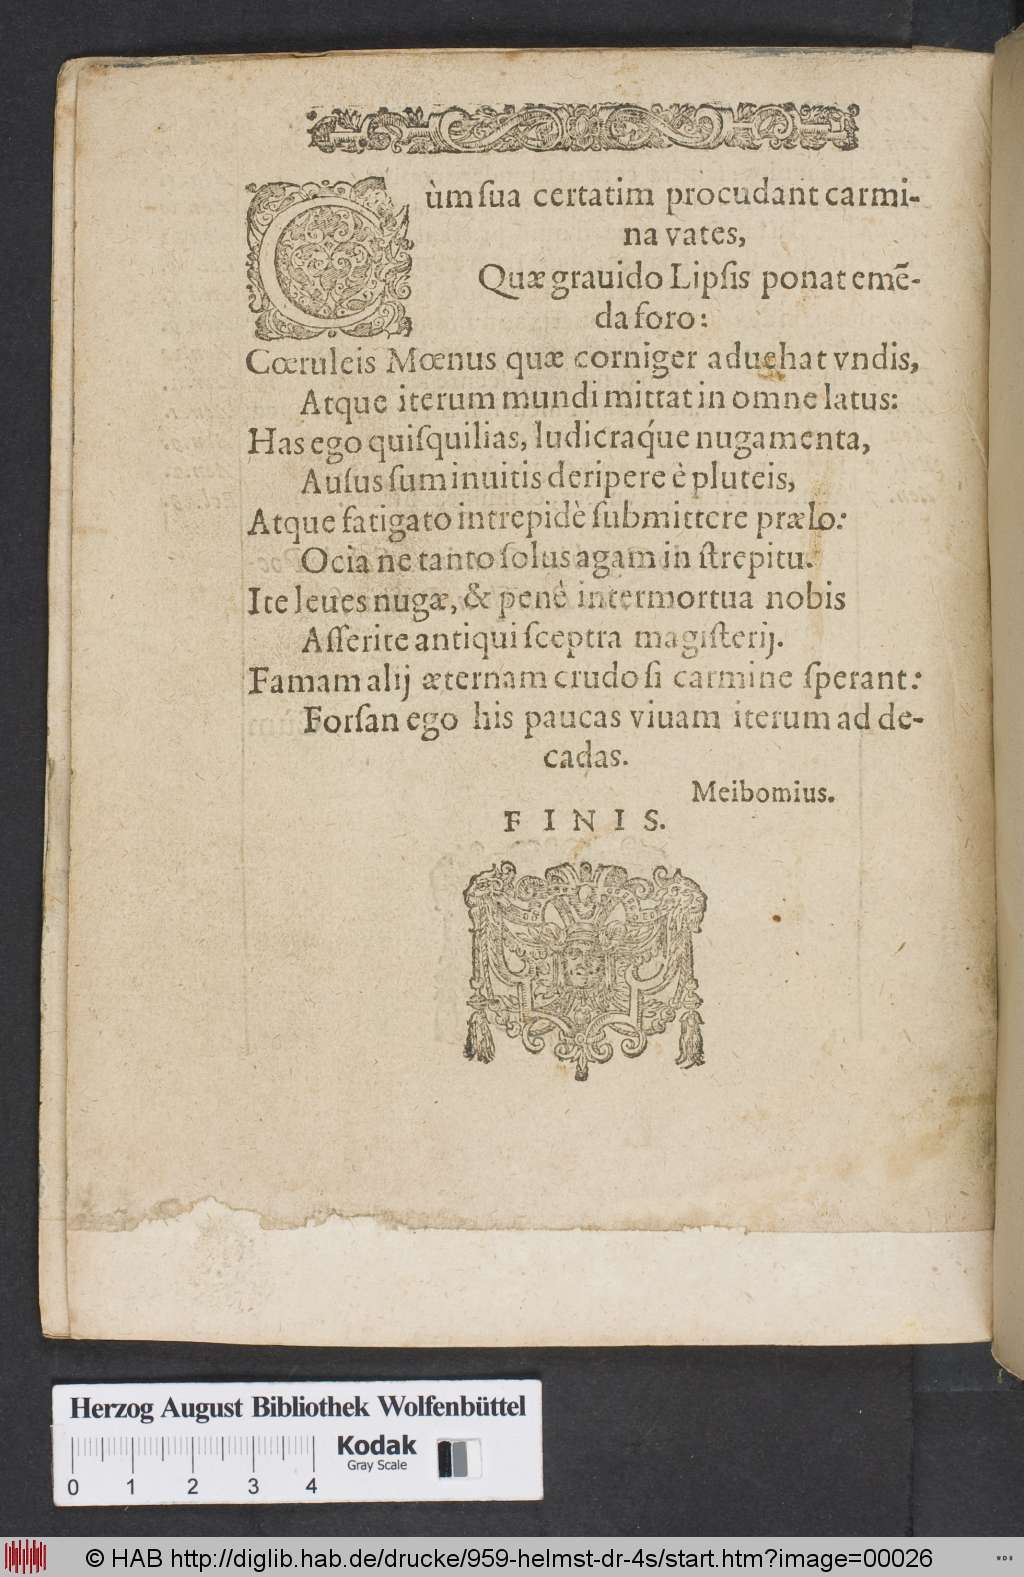 Cùm ſua certatim procudant carmi-
na vates,
Quæ grauido Lipſis ponat emē-
da foro:
Cœruleis Mœnus quæ corniger aduehat vndis,
Atque iterum mundi mittat in omne latus:
Has ego quiſquilias, ludicraq́ue nugamenta,
Auſus ſum inuitis deripere è pluteis,
Atque fatigato intrepidè ſubmittere prælo:
Ocia ne tanto ſolus agam in ſtrepitu.
Ite leues nugæ, & penè intermortua nobis
Aſſerite antiqui ſceptra magiſterij.
Famam alij æternam crudo ſi carmine ſperant:
Forſan ego his paucas viuam iterum ad de-
cadas.
Meibomius.
FINIS.
Herzog August Bibliothek Wolfenbüttel
Kodak
Gray Scale
0 1 2 3 4
© HAB http://diglib.hab.de/drucke/959-helmst-dr-4s/start.htm?image=00026